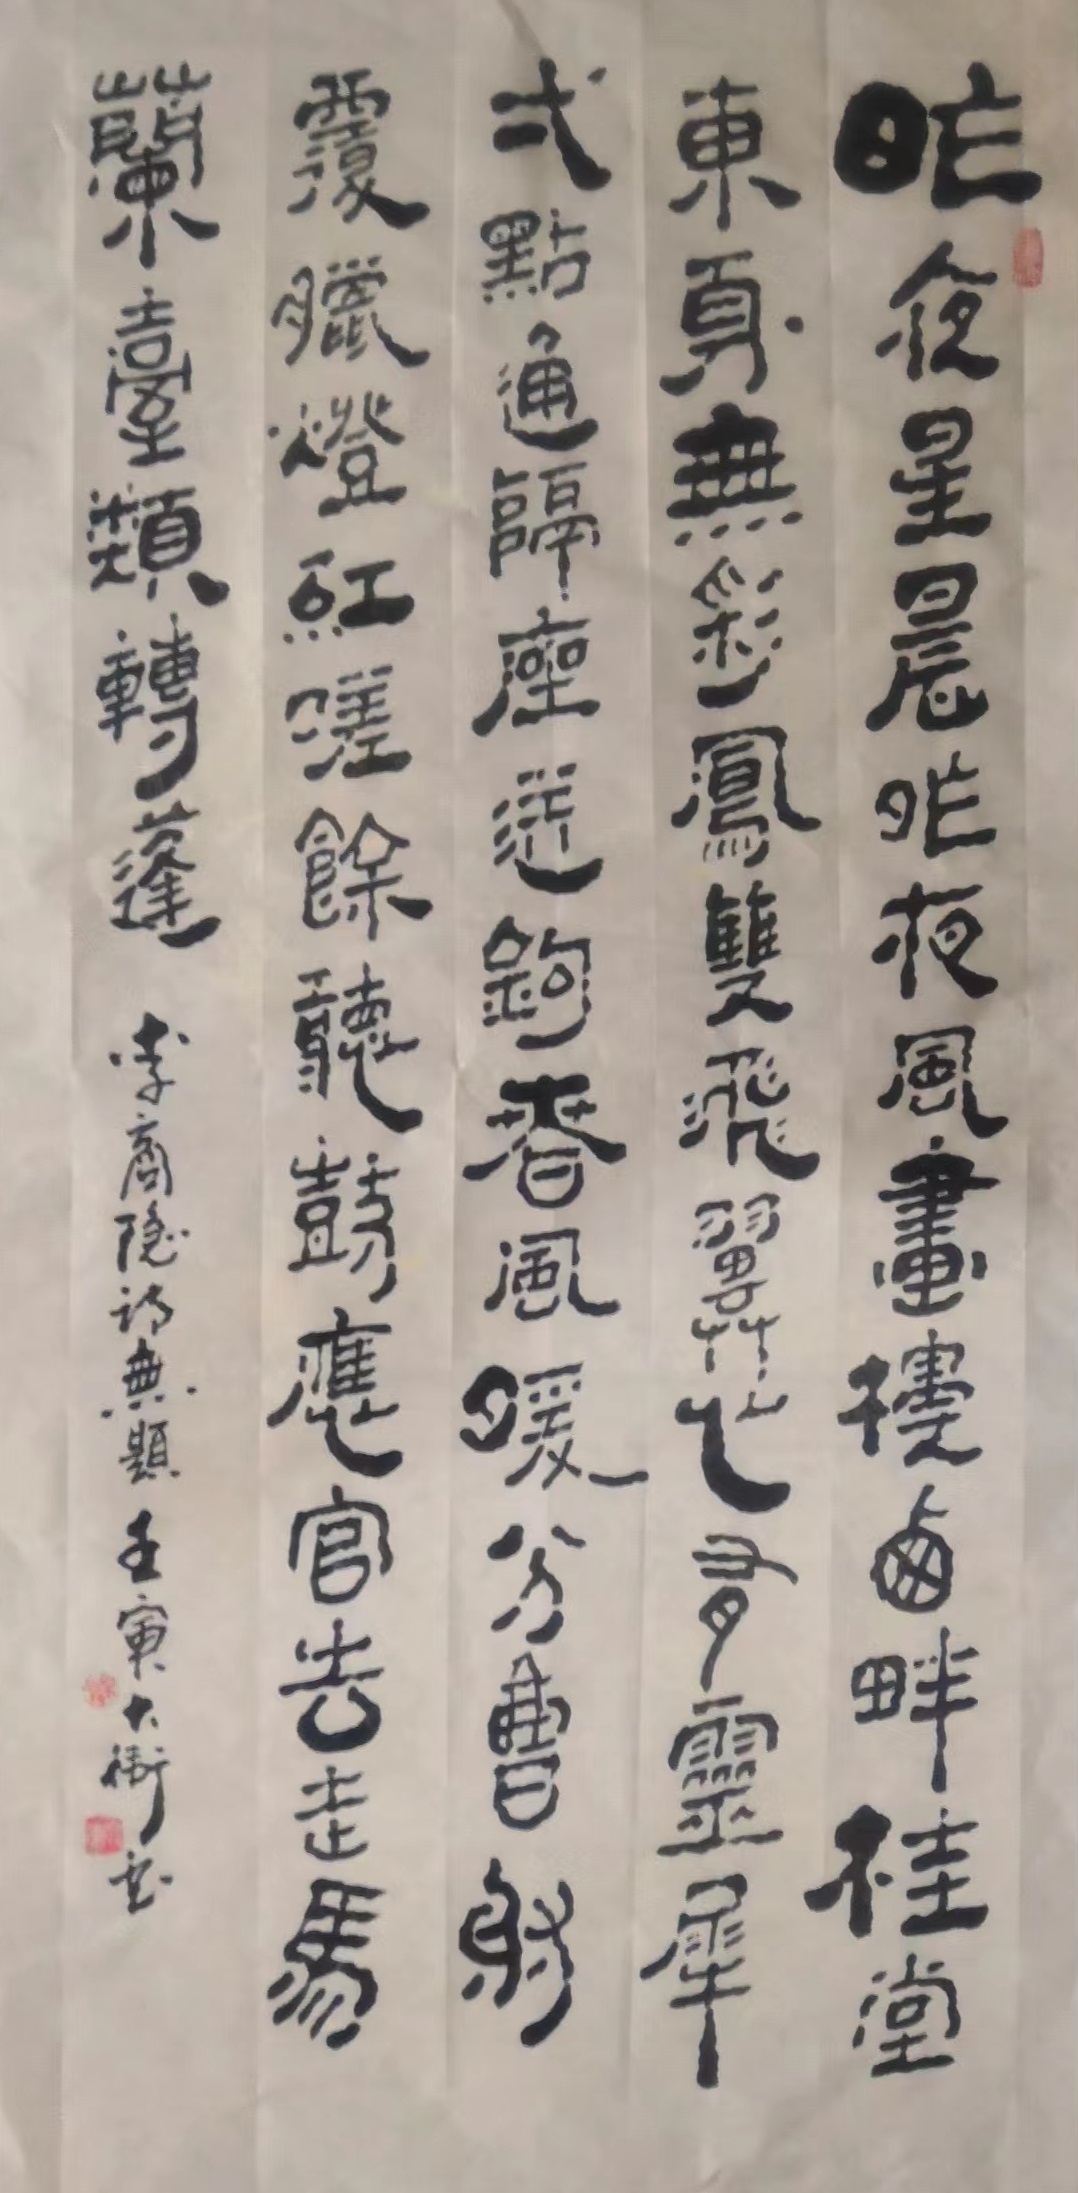 昨夜星晨昨夜風畫樓西畔桂堂
東身無彩鳳雙飛翼心有靈犀
弌點通隔座送鉤春風暖分曹射
覆臘燈紅嗟餘聽鼓應官去走馬
蘭臺類轉蓬 李商隱詩無題 壬寅 大衛书